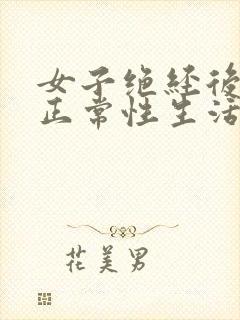 女子绝经後
正常性生活
花美男